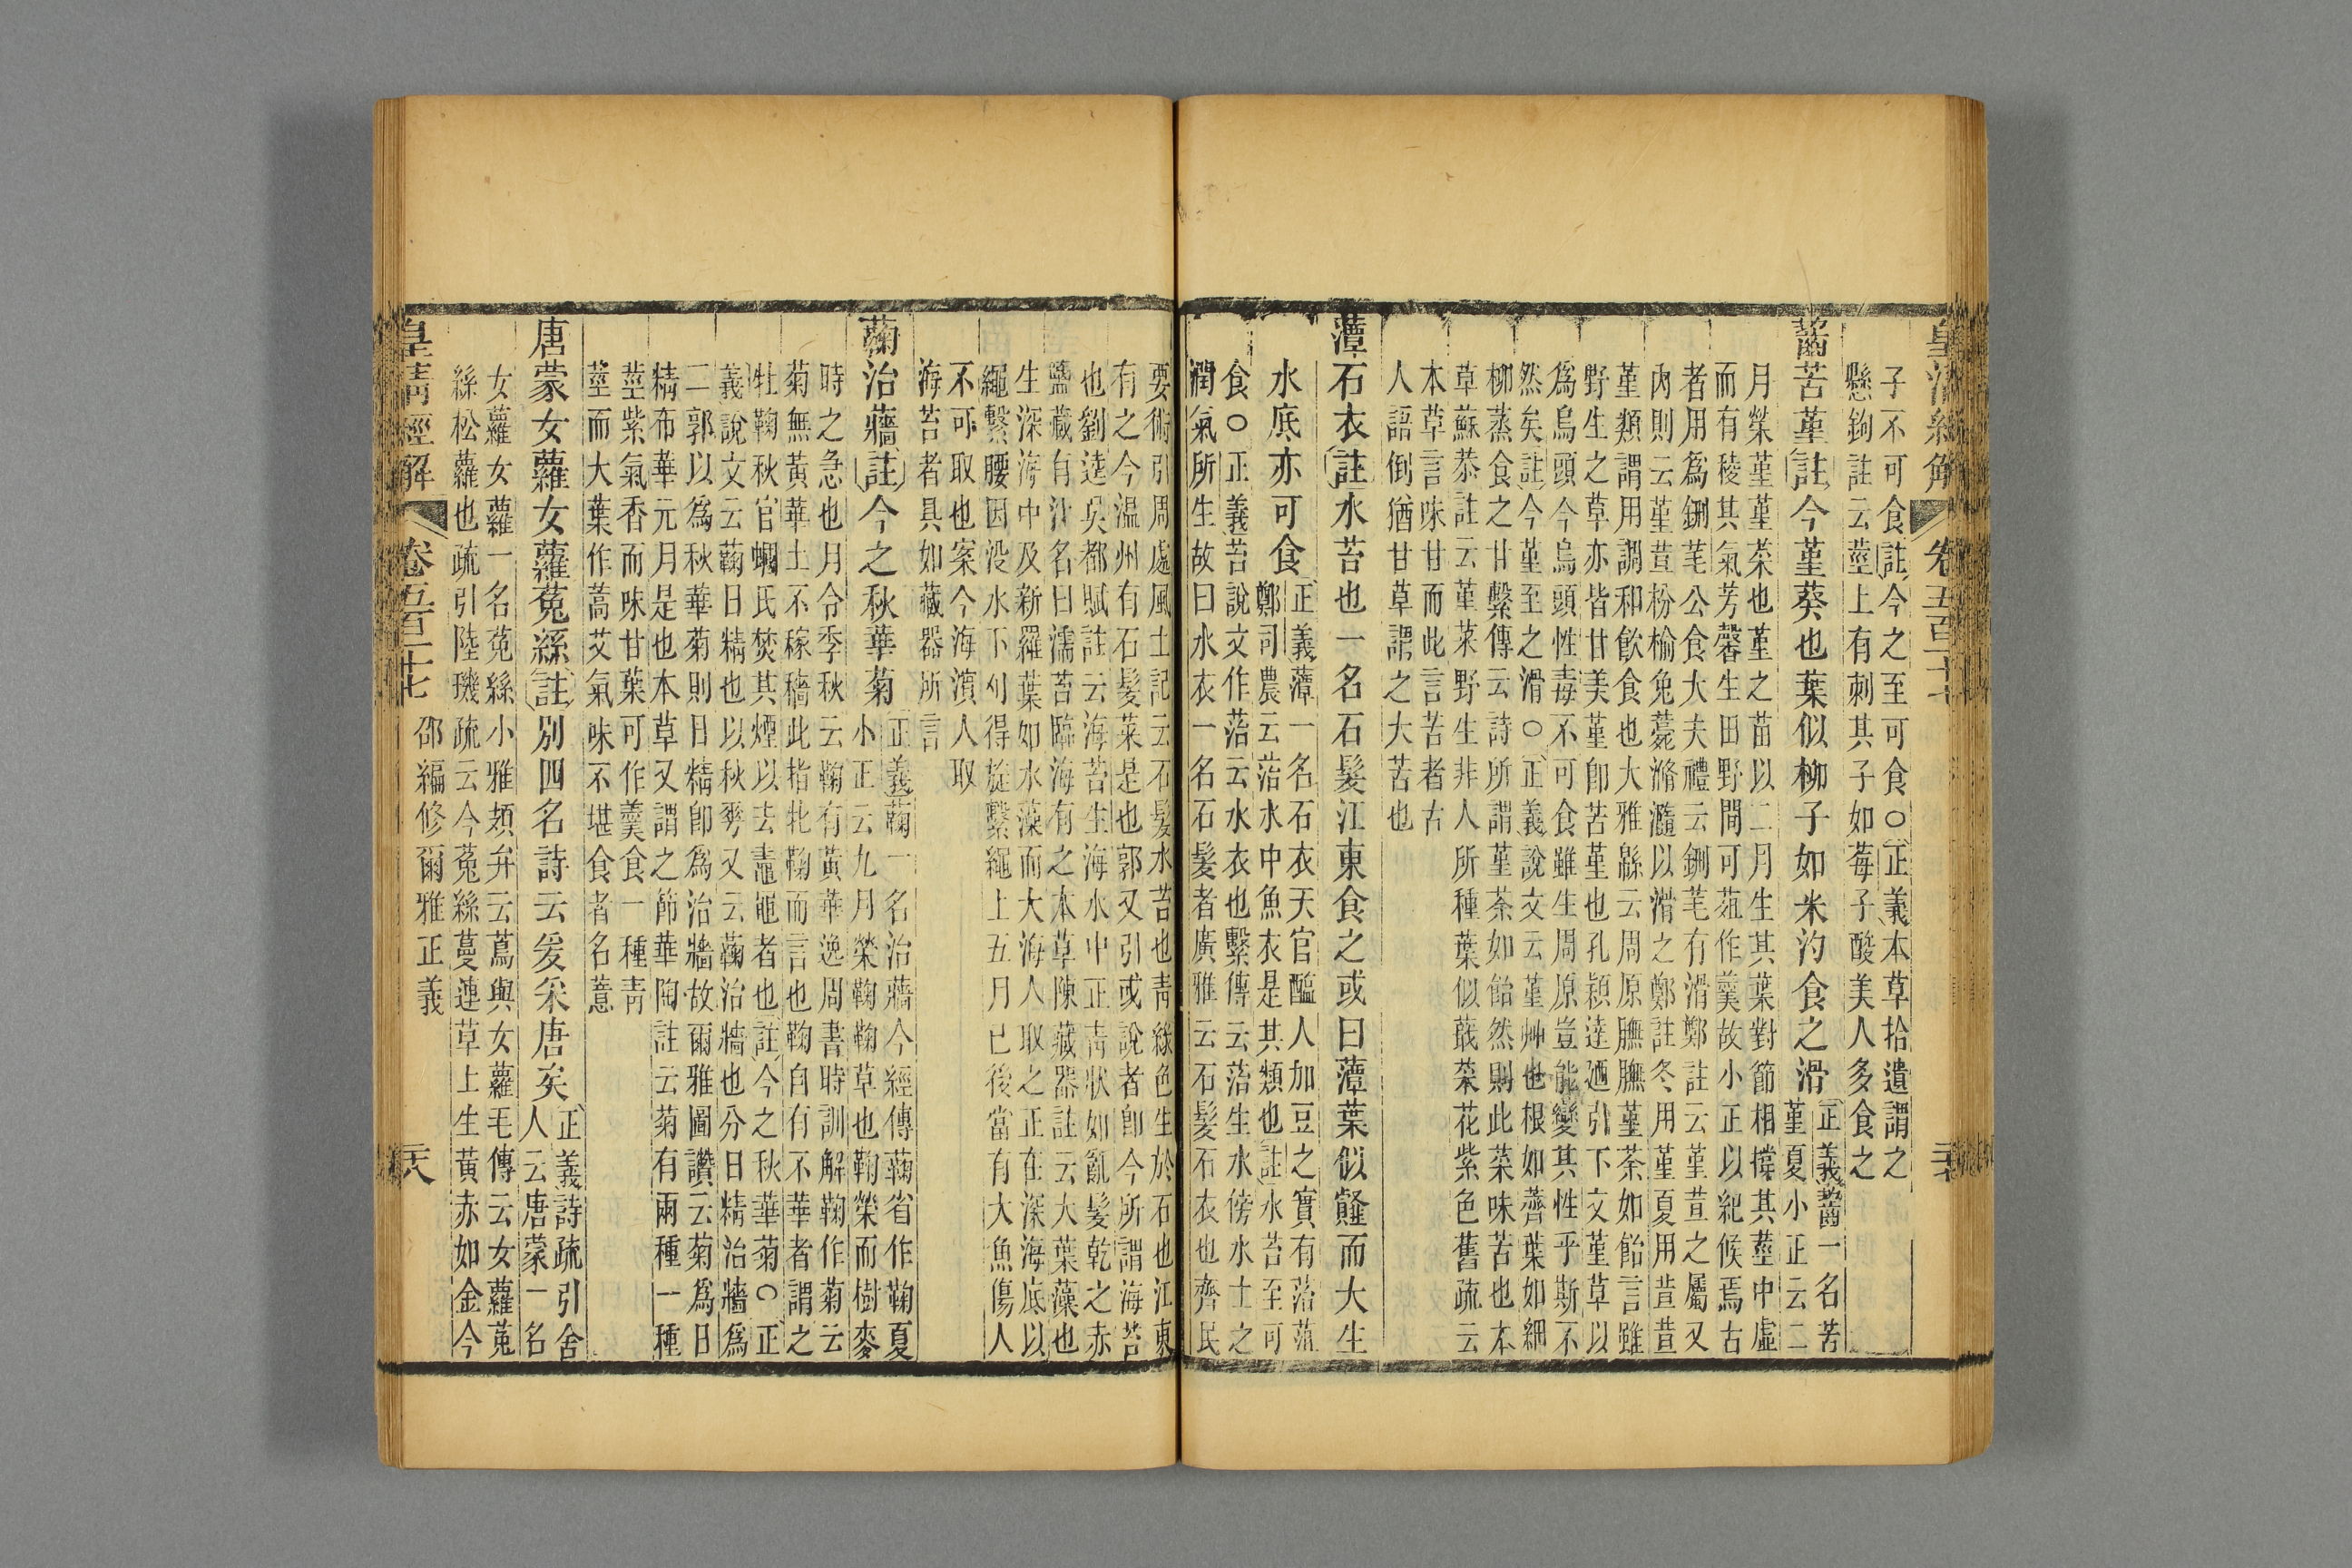 皇清經解 卷五百二十七
子不可食註今之至可食○正義本草拾遺謂之
懸鉤註云莖上有刺其子如莓子酸美人多食之
齧苦菫註今菫葵也葉似柳子如米汋食之滑
正義齧一名苦
菫夏小正云二
月榮菫菫菜也菫之苗以二月生其葉對節相撐其莖中虛
而有稜其氣芳馨生田野間可茹作羹故小正以紀候焉古
者用爲鉶芼公食大夫禮云鉶芼有滑鄭註云菫荁之屬又
內則云菫荁枌榆免薧滫瀡以滑之鄭註冬用菫夏用荁荁
菫類謂用調和飮食也大雅緜云周原膴膴菫荼如飴言雖
野生之草亦皆甘美菫卽苦菫也孔穎達廼引下文菫草以
爲烏頭今烏頭性毒不可食雖生周原豈能變其性乎斯不
然矣註今菫至之滑○正義說文云菫艸也根如薺葉如細
柳蒸食之甘繫傳云詩所謂菫荼如飴然則此菜味苦也本
草蘇恭註云菫菜野生非人所種葉似蕺菜花紫色舊疏云
本草言味甘而此言苦者古
人語倒猶甘草謂之大苦也
薚石衣註水苔也一名石髮江東食之或曰薚葉似䪥而大生
水底亦可食
正義薚一名石衣天官醢人加豆之實有菭菹
鄭司農云菭水中魚衣是其類也註水苔至可
食○正義苔說文作菭云水衣也繫傳云菭生水傍水土之
潤氣所生故曰水衣一名石髮者廣雅云石髮石衣也齊民
要術引周處風土記云石髮水苔也靑綠色生於石也江東
有之今溫州有石髮菜是也郭又引或說者卽今所謂海苔
也劉逵吳都賦註云海苔生海水中正靑狀如亂髮乾之赤
鹽藏有汁名曰濡苔臨海有之本草陳藏器註云大葉藻也
生深海中及新羅葉如水藻而大海人取之正在深海底以
繩繫腰因没水下刈得旋繫繩上五月已後當有大魚傷人
不可取也案今海濱人取
海苔者具如藏器所言
蘜治蘠註今之秋華菊
正義蘜一名治蘠今經傳蘜省作鞠夏
小正云九月榮鞠鞠草也鞠榮而樹麥
時之急也月令季秋云鞠有黃華逸周書時訓解鞠作菊云
菊無黃華土不稼穡此指牝鞠而言也鞠自有不華者謂之
牡鞠秋官蟈氏焚其煙以去鼃黽者也註今之秋華菊○正
義說文云蘜日精也以秋華又云蘜治牆也分日精治牆爲
二郭以爲秋華菊則日精卽爲治牆故爾雅圖讚云菊爲日
精布華元月是也本草又謂之節華陶註云菊有兩種一種
莖紫氣香而味甘葉可作羹食一種靑
莖而大葉作蒿艾氣味不堪食者名薏
唐蒙女蘿女蘿菟絲註別四名詩云爰采唐矣
正義詩疏引舍
人云唐蒙一名
女蘿女蘿一名菟絲小雅頍弁云蔦與女蘿毛傳云女蘿菟
絲松蘿也疏引陸璣疏云今菟絲蔓連草上生黃赤如金今
皇清經解 卷五百二十七 邵編修爾雅正義 天